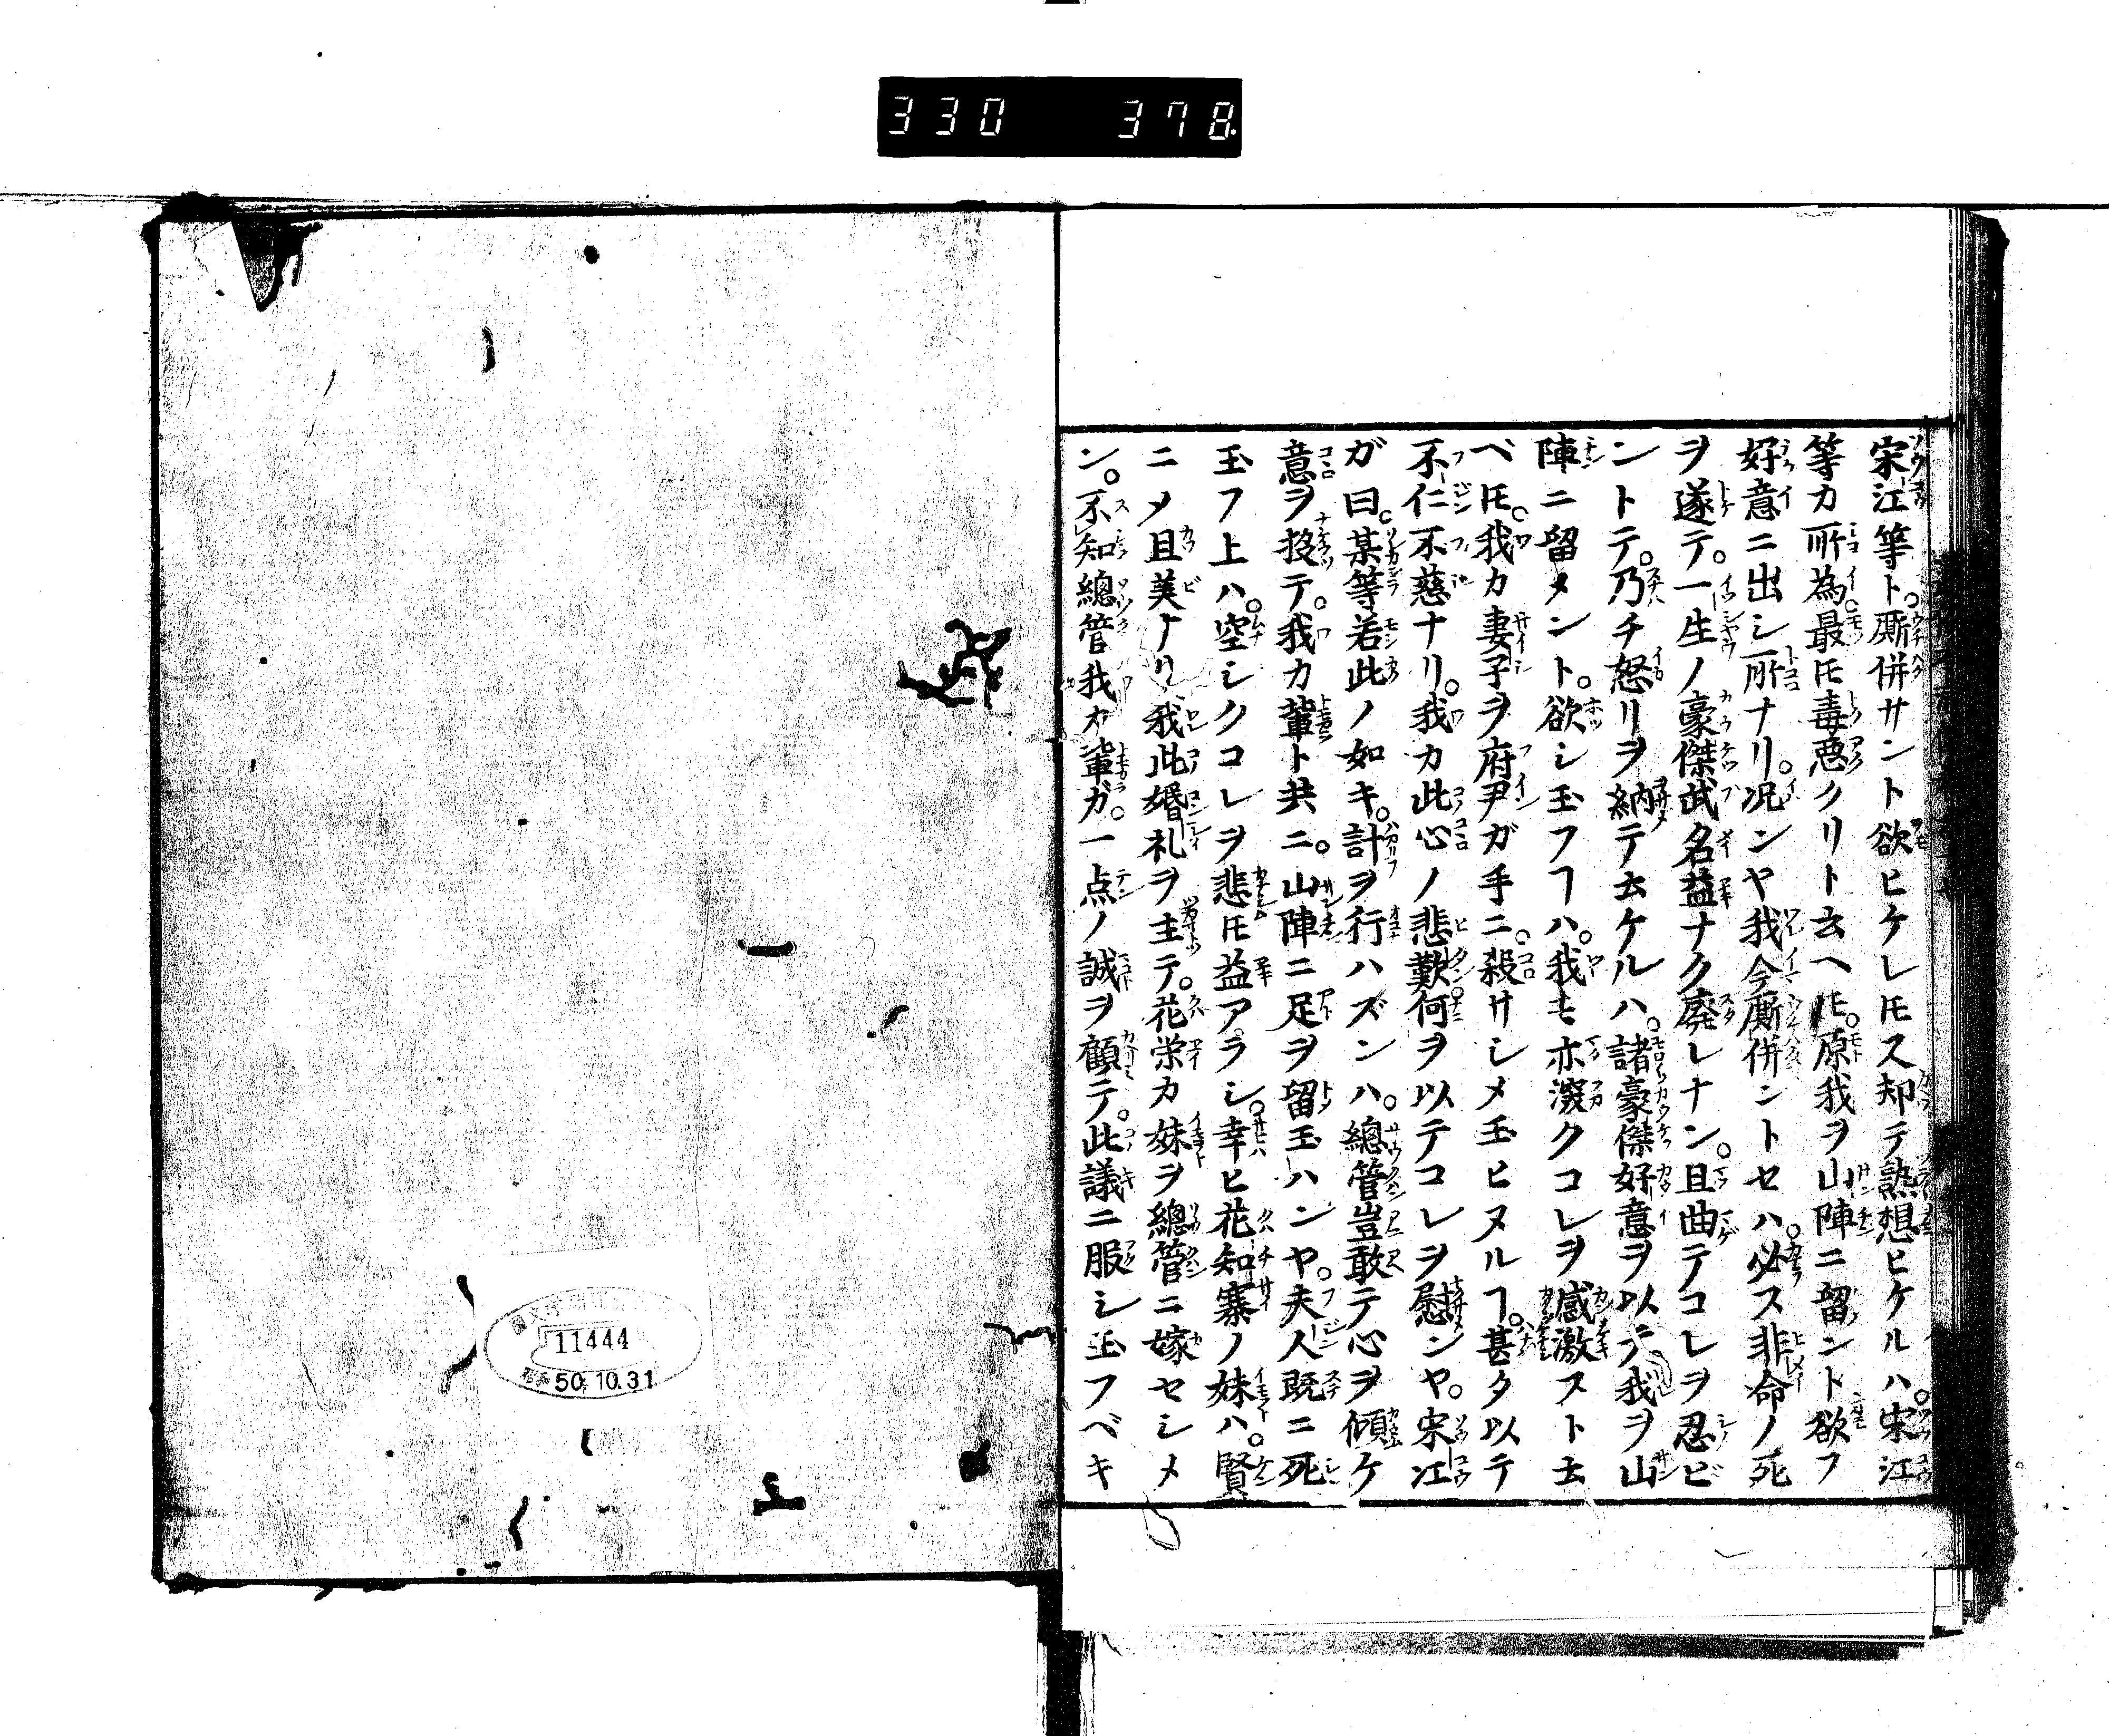 330 378
宋江等ト。厮併サント欲ヒケレ𪜈ス却テ熟想ヒケルハ。宋江
等カ所為最𪜈毒悪クリト云ヘ𪜈。原我ヲ山陣ニ留ント欲フ
好意ニ出シ所ナリ。况ンヤ我今厮併ントセハ。必ス非命ノ死
ヲ遂テ。一生ノ豪傑武名益ナク廃レナン。且曲テコレヲ忍ビ
ントテ。乃チ怒リヲ納テ云ケルハ。諸豪傑好意ヲ以テ我ヲ山
陣ニ留メント。欲シ玉フヿハ。我モ亦深クコレヲ感激スト云
ベ𪜈。我カ妻子ヲ府尹ガ手ニ。殺サシメ玉ヒヌルヿ。甚タ以テ
不仁不慈ナリ。我カ此心ノ悲歎何ヲ以テコレヲ慰ンヤ。宋江
ガ曰。某等若此ノ如キ。計ヲ行ハズンハ。總管豈敢テ心ヲ傾ケ
意ヲ投テ。我カ輩ト共ニ。山陣ニ足ヲ留玉ハンヤ。夫人既ニ死
玉フ上ハ。空シクコレヲ悲𪜈益アラシ。幸ヒ花知寨ノ妹ハ。賢
ニメ且美ナリ我此婚礼ヲ主テ。花栄カ妹ヲ總管ニ嫁セシメ
ン。不知總管我カ輩ガ。一点ノ誠ヲ顧テ。此議ニ服シ玉フベキ
11444
50.10.31